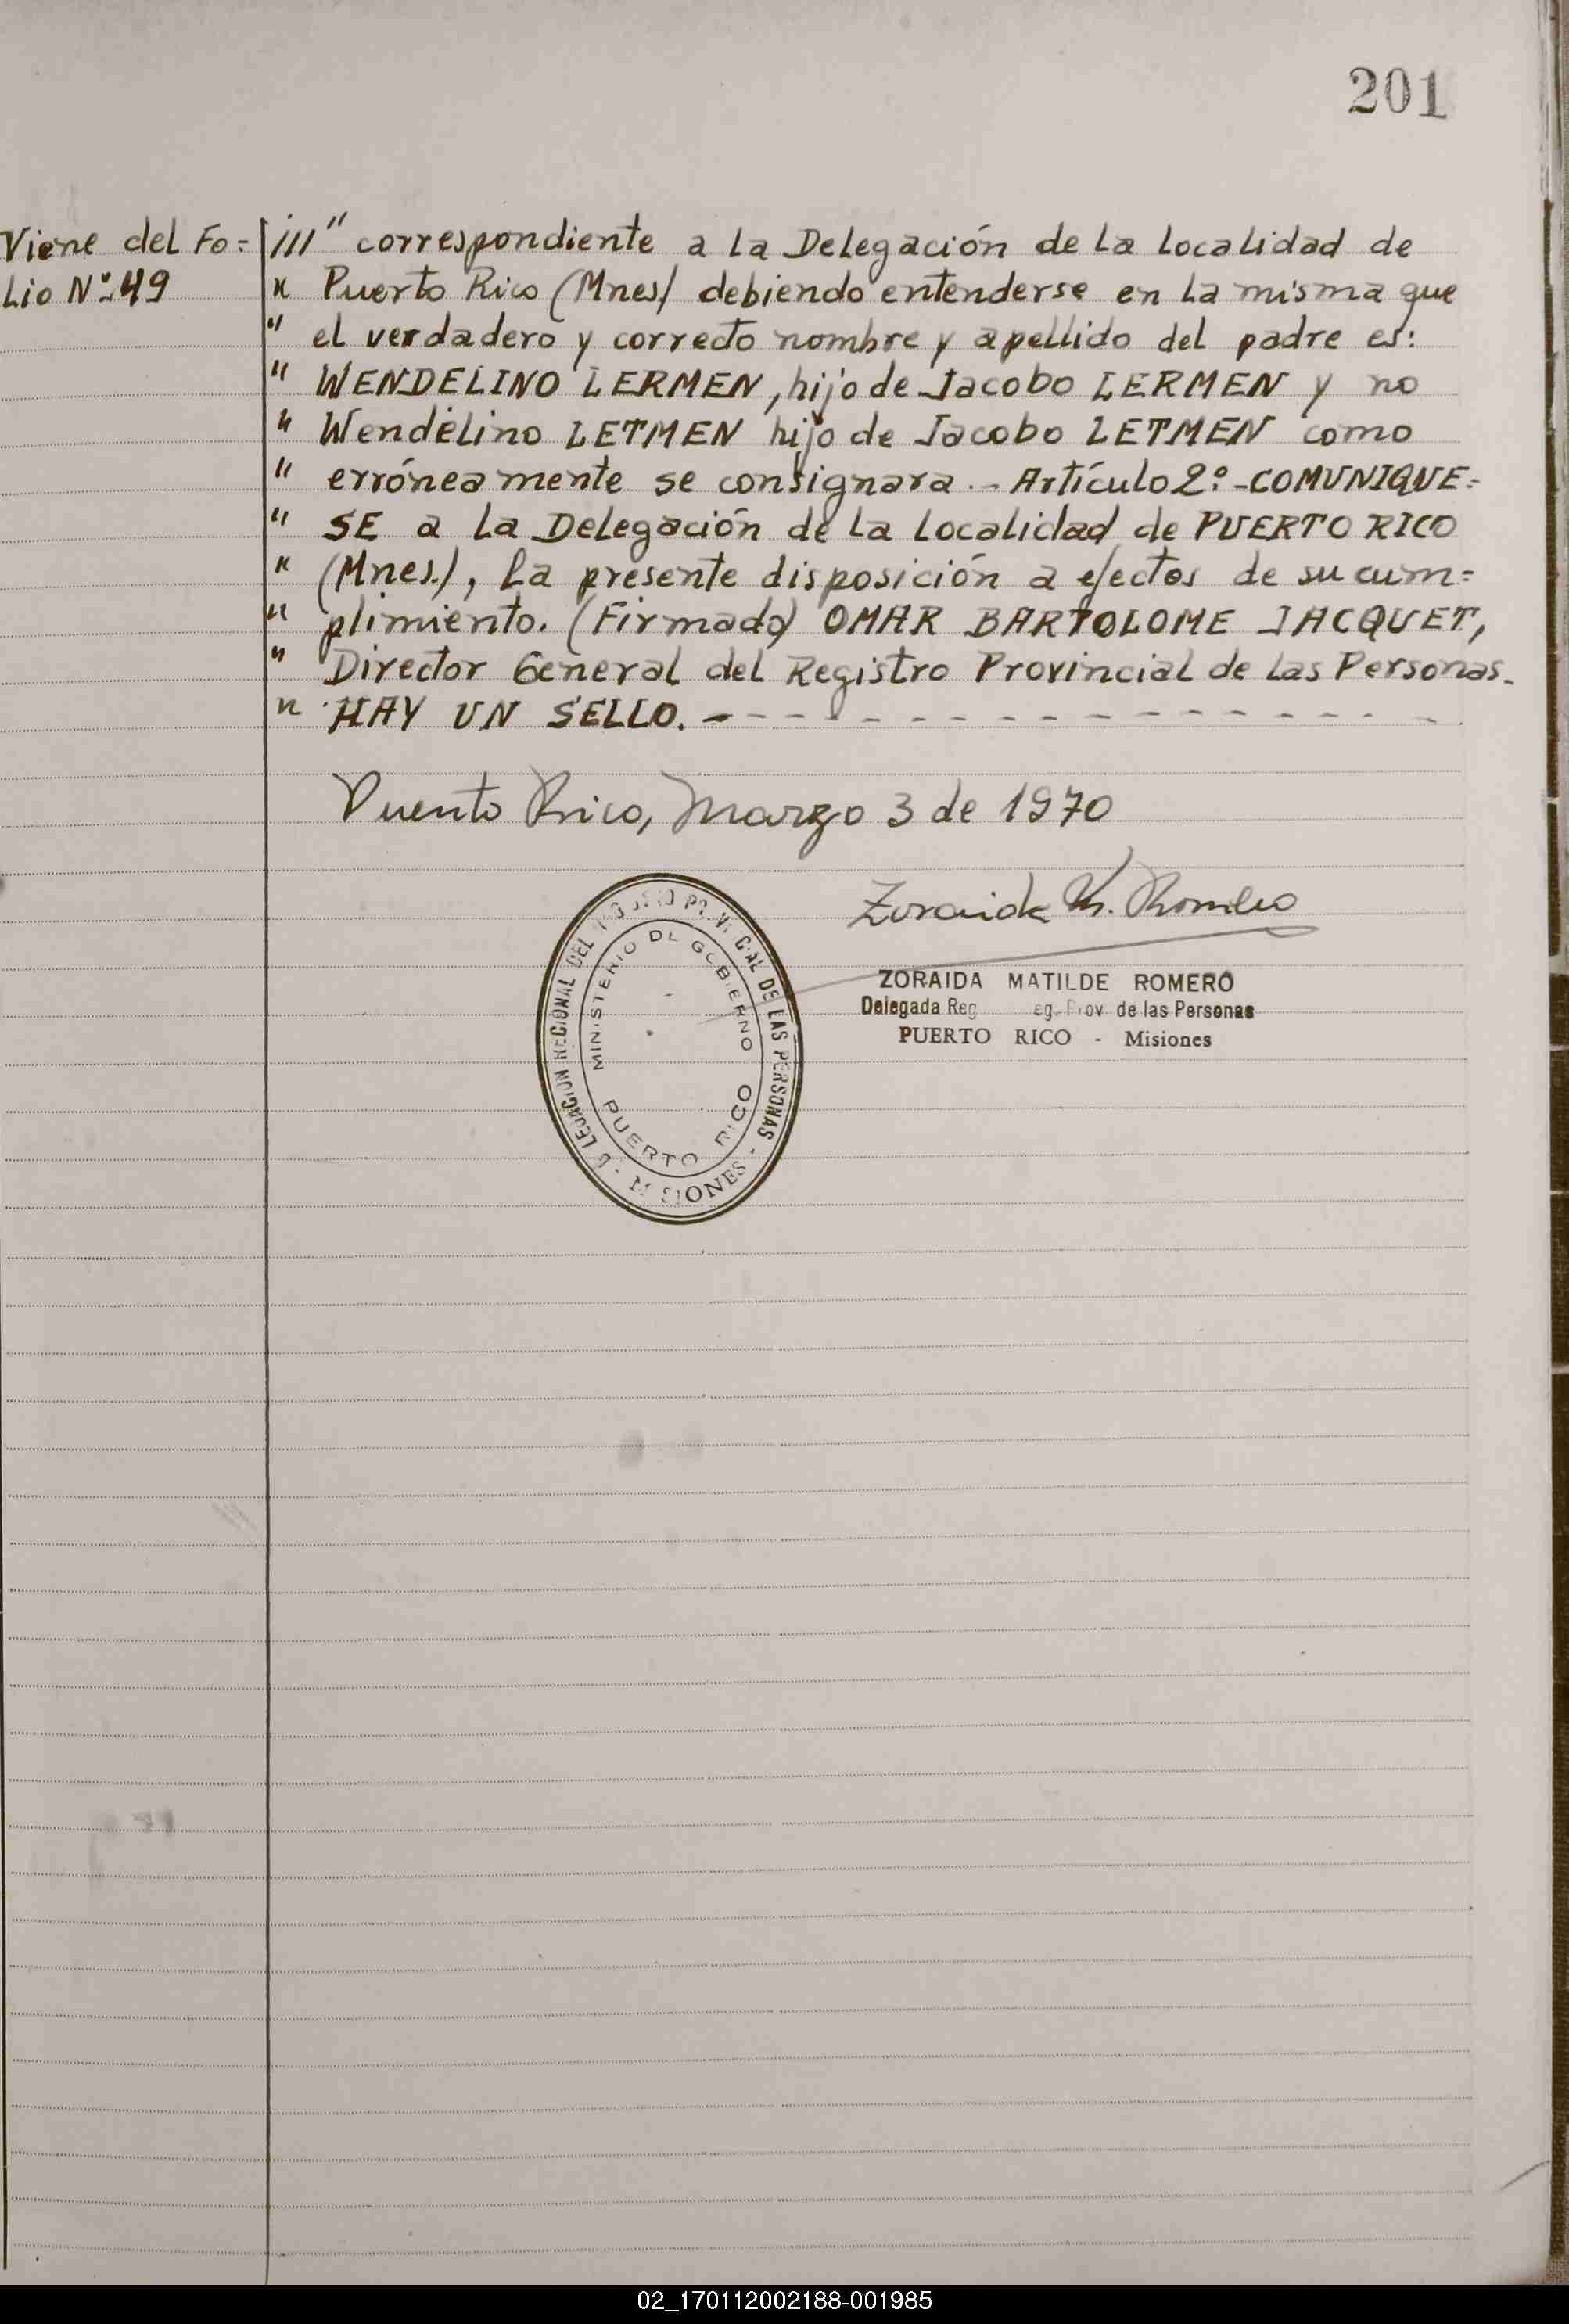 201
Viene del Fo=
Lio Nº 49
///" correspondiente a La Delegación de La Localidad de
" Puerto Rico (Mnes) debiendo entenderse en La misma que
" el verdadero y correcto nombre y apellido del padre es:
" WENDELINO LERMEN, hijo de Jacobo LERMEN y no
" Wendelino LETMEN hijo de Jacobo LETMEN como
" erróneamente se consignara.- Artículo 2º-COMUNIQUE=
" SE a La Delegación de La Localidad de PUERTO RICO
" (Mnes.), La presente disposición a efectos de su cum=
" plimiento. (Firmado) OMAR BARTOLOME JACQUET,
" Director General del Registro Provincial de Las Personas.
" HAY UN SELLO. - - - - - - - - - - - - - - - -
Puerto Rico, Marzo 3 de 1970
Zoraida M. Romero
ZORAIDA MATILDE ROMERO
Delegada Reg eg. Prov de las Personas
PUERTO RICO - Misiones
LEGACION REGIONAL DEL PROVINCIAL DE LAS PERSONAS - MISIONES -
MINISTERIO DE GOBIERNO
PUERTO RICO
02_170112002188-001985